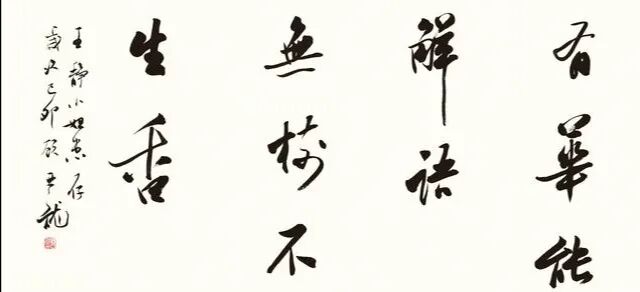 有華能
解語
無樹不
生香
王静小姐惠存
歲次己卯龍